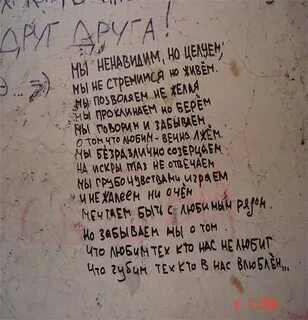 ДРУГ ДРУГА!
Мы ненавидим, но целуем,
мы не стремимся но живём.
мы позволяем не желая
мы проклинаем но берём
мы говорим и забываем,
о том что любим-вечно лжём.
мы безразлично созерцаем
на искры глаз не отвечаем
мы грубо чувствами играем
и не жалеем ни о чём
мечтаем быть с любимым рядом.
Но забываем мы о том
Что любим тех кто нас не любит
Что губим тех кто в нас влюблён...